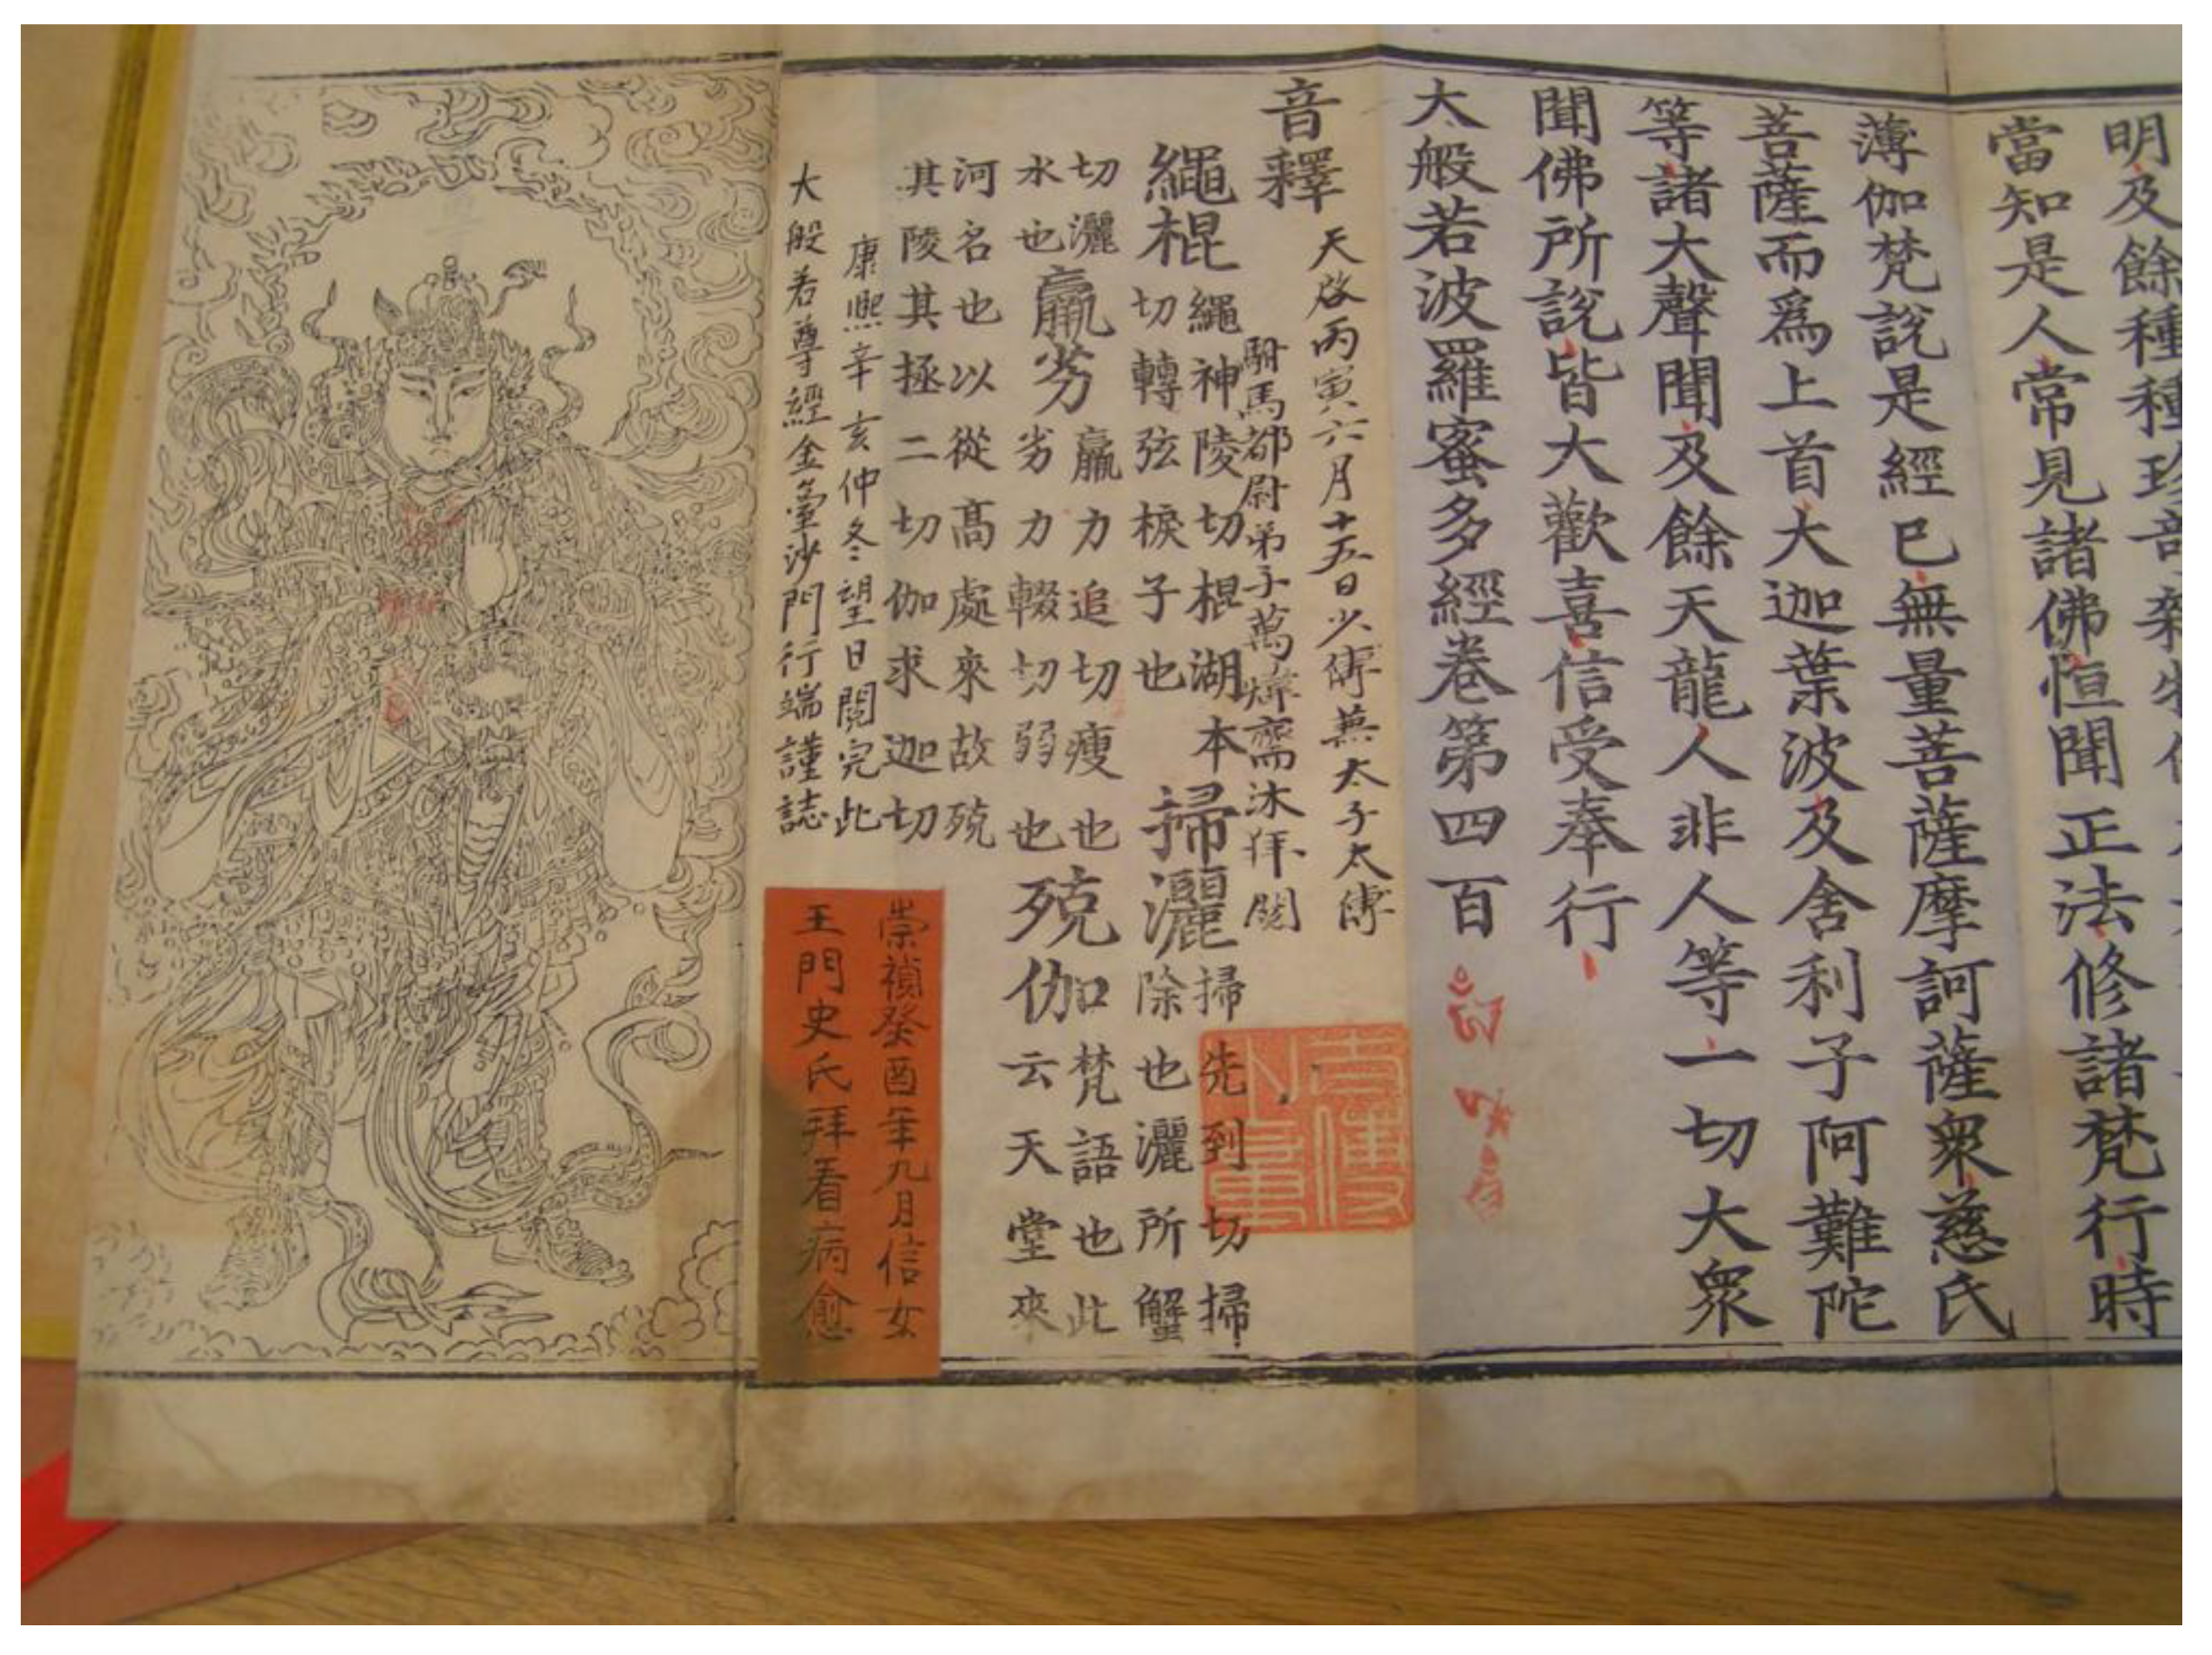 明及餘種種
當知是人常見諸佛恒聞正法修諸梵行時
薄伽梵說是經已無量菩薩摩訶薩眾慈氏
菩薩而為上首大迦葉波及舍利子阿難陀
等諸大聲聞及餘天龍人非人等一切大眾
聞佛所說皆大歡喜信受奉行
大般若波羅蜜多經卷第四百
天啟丙寅六月十五日少傅兼太子太傅
駙馬都尉弟子萬煒齋沐拜閱
音釋
繩棍
繩神陵切棍湖本
切轉弦棙子也
掃灑
掃先到切掃
除也灑所蟹
切灑
水也
羸劣
羸力追切瘦也
劣力輟切弱也
殑伽
梵語也此
云天堂來
河名也以從高處來故殑
其陵其拯二切伽求迦切
康熙辛亥仲冬望日閱完此
大般若尊經金臺沙門行端謹誌
崇禎癸酉年九月信女
王門史氏拜看病愈